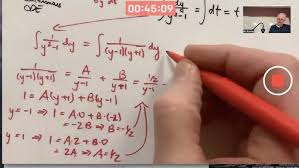 00:45:09
ODE
∫ dy/(y²-1) = ∫ dt = t
∫ 1/(y²-1) dy = ∫ 1/((y-1)(y+1)) dy
1/((y-1)(y+1)) = A/(y-1) + B/(y+1) = 1/2/(y-1)
1 = A(y+1) + B(y-1)
y=-1 ⇒ 1 = A·0 + B·(-2)
= -2B ⇒ B=-1/2
y=1 ⇒ 1 = A·2 + B·0
= 2A ⇒ A=1/2